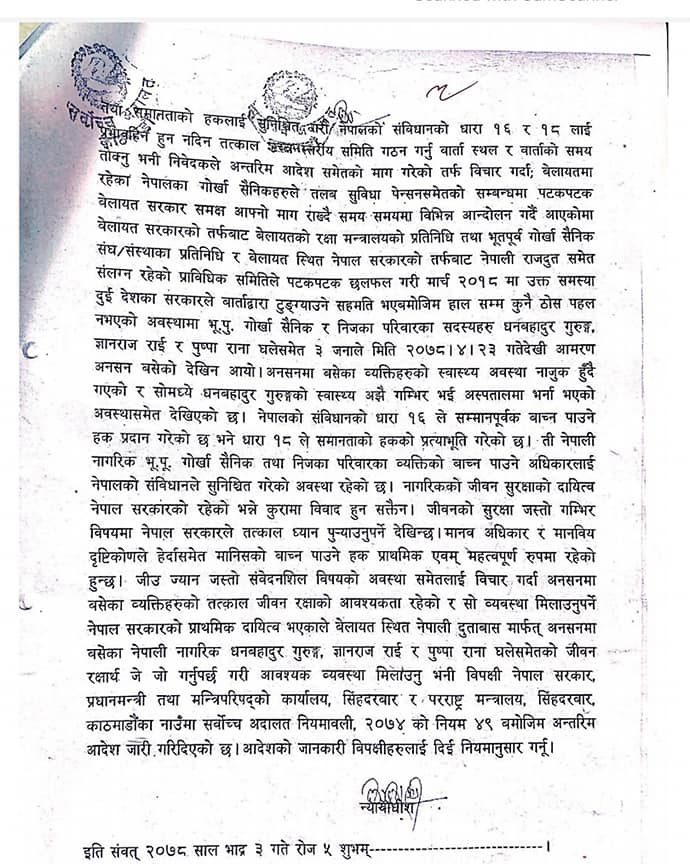 तथा समानताको हकलाई सुनिश्चित गरी नेपालको संविधानको धारा १६ र १८ लाई
प्रभावहिन हुन नदिन तत्काल उच्चस्तरीय समिति गठन गर्नु वार्ता स्थल र वार्ताको समय
तोक्नु भनी निवेदकले अन्तरिम आदेश समेतको माग गरेको तर्फ विचार गर्दा; बेलायतमा
रहेका नेपालका गोर्खा सैनिकहरुले तलब सुविधा पेन्सनसमेतको सम्बन्धमा पटकपटक
बेलायत सरकार समक्ष आफ्नो माग राख्दै समय समयमा विभिन्न आन्दोलन गर्दै आएकोमा
बेलायत सरकारको तर्फबाट बेलायतको रक्षा मन्त्रालयको प्रतिनिधि तथा भूतपूर्व गोर्खा सैनिक
संघ/संस्थाका प्रतिनिधि र बेलायत स्थित नेपाल सरकारको तर्फबाट नेपाली राजदुत समेत
संलग्न रहेको प्राविधिक समितिले पटकपटक छलफल गरी मार्च २०१८ मा उक्त समस्या
दुई देशका सरकारले वार्ताद्वारा टुङ्ग्याउने सहमति भएबमोजिम हाल सम्म कुनै ठोस पहल
नभएको अवस्थामा भू.पु. गोर्खा सैनिक र निजका परिवारका सदस्यहरु धनबहादुर गुरुङ्ग,
ज्ञानराज राई र पुष्पा राना घलेसमेत ३ जनाले मिति २०७८।४।२३ गतेदेखी आमरण
अनसन बसेको देखिन आयो। अनसनमा बसेका व्यक्तिहरुको स्वास्थ्य अवस्था नाजुक हुँदै
गएको र सोमध्ये धनबहादुर गुरुङ्गको स्वास्थ्य अझै गम्भिर भई अस्पतालमा भर्ना भएको
अवस्थासमेत देखिएको छ। नेपालको संविधानको धारा १६ ले सम्मानपूर्वक बाच्न पाउने
हक प्रदान गरेको छ भने धारा १८ ले समानताको हकको प्रत्याभूति गरेको छ। ती नेपाली
नागरिक भू.पू. गोर्खा सैनिक तथा निजका परिवारका व्यक्तिको बाच्न पाउने अधिकारलाई
नेपालको संविधानले सुनिश्चित गरेको अवस्था रहेको छ। नागरिकको जीवन सुरक्षाको दायित्व
नेपाल सरकारको रहेको भन्ने कुरामा विवाद हुन सक्तैन। जीवनको सुरक्षा जस्तो गम्भिर
विषयमा नेपाल सरकारले तत्काल ध्यान पुऱ्याउनुपर्ने देखिन्छ। मानव अधिकार र मानविय
दृष्टिकोणले हेर्दासमेत मानिसको बाच्न पाउने हक प्राथमिक एवम् महत्वपूर्ण रुपमा रहेको
हुन्छ। जीउ ज्यान जस्तो संवेदनशिल विषयको अवस्था समेतलाई विचार गर्दा अनसनमा
बसेका व्यक्तिहरुको तत्काल जीवन रक्षाको आवश्यकता रहेको र सो व्यवस्था मिलाउनुपर्ने
नेपाल सरकारको प्राथमिक दायित्व भएकाले बेलायत स्थित नेपाली दुताबास मार्फत् अनसनमा
बसेका नेपाली नागरिक धनबहादुर गुरुङ्ग, ज्ञानराज राई र पुष्पा राना घलेसमेतको जीवन
रक्षार्थ जे जो गर्नुपर्छ गरी आवश्यक व्यवस्था मिलाउनु भनी विपक्षी नेपाल सरकार,
प्रधानमन्त्री तथा मन्त्रिपरिषद्को कार्यालय, सिंहदरबार र परराष्ट्र मन्त्रालय, सिंहदरबार,
काठमाडौंका नाउँमा सर्वोच्च अदालत नियमावली, २०७४ को नियम ४९ बमोजिम अन्तरिम
आदेश जारी गरिदिएको छ। आदेशको जानकारी विपक्षीहरुलाई दिई नियमानुसार गर्नू।
न्यायाधीश
इति संवत् २०७८ साल भाद्र ३ गते रोज ५ शुभम्------------------------------।